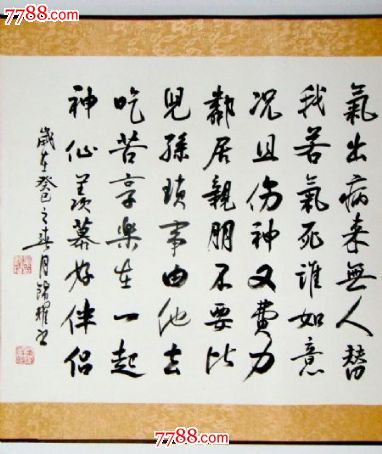 7788.com
氣出病来無人替
我若氣死誰如意
况且伤神又費力
鄰居親朋不要比
児孫瑣事由他去
吃苦享樂在一起
神仙羡慕好伴侣
歲在癸巳之春月
7788.com